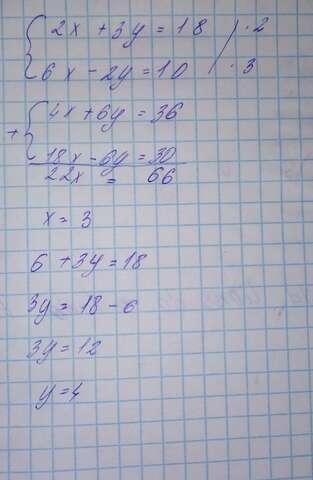 { 2x + 3y = 18 / · 2
6x - 2y = 10 / · 3
+ { 4x + 6y = 36
18x - 6y = 30
22x = 66
x = 3
6 + 3y = 18
3y = 18 - 6
3y = 12
y = 4